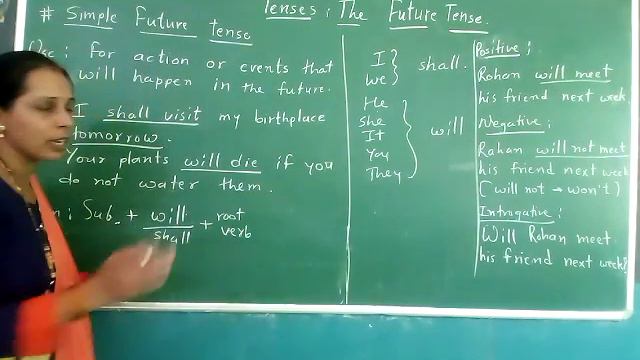 Tenses : The Future Tense.
# Simple Future tense
Use : For action or events that
will happen in the future.
I shall visit my birthplace
tomorrow.
Your plants will die if you
do not water them.
: Sub. + will/shall + root verb
I
We
shall.
He
She
It
You
They
will
Positive :
Rohan will meet
his friend next week
Negative :
Rahan will not meet
his friend next week
(will not → won't)
Intrrogative :
Will Rohan meet
his friend next week?